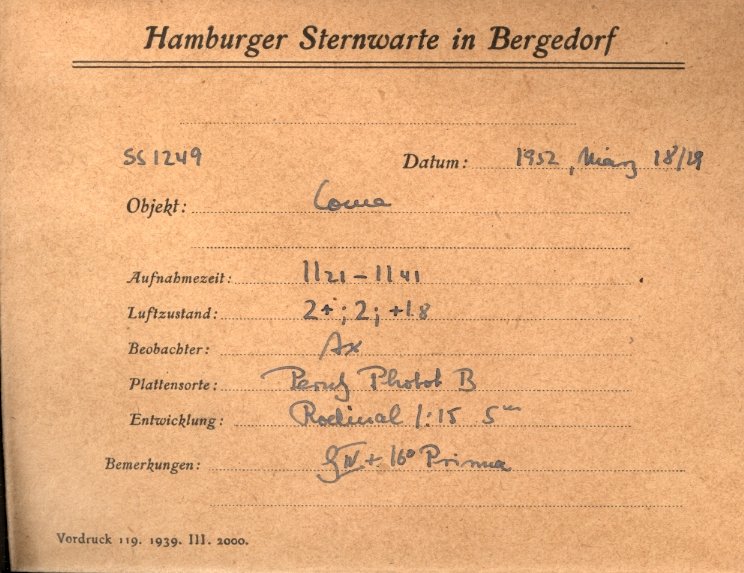 Hamburger Sternwarte in Bergedorf
SS 1249 Datum: 1952, März 18/19
Objekt: Coma
Aufnahmezeit: 11 21 – 11 41
Luftzustand: 2+; 2; +1.8
Beobachter: Ax
Plattensorte: Perutz Photot B
Entwicklung: Rodinal 1:15 5m
Bemerkungen: IV + 16° Prisma
Vordruck 119. 1939. III. 2000.